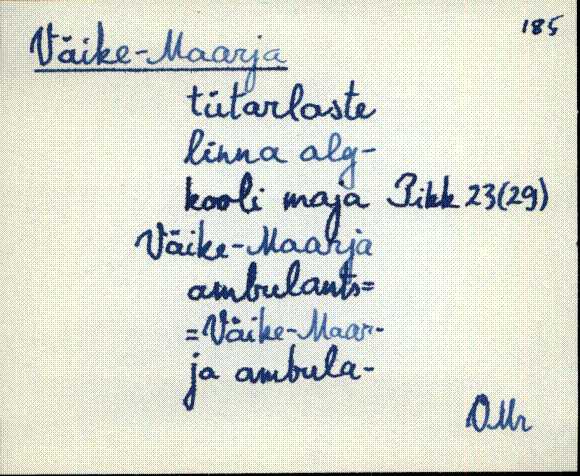 185
Väike-Maarja
tütarlaste
linna alg-
kooli maja Pikk 23(29)
Väike-Maarja
ambulants=
=Väike-Maar-
ja ambula-
OMr